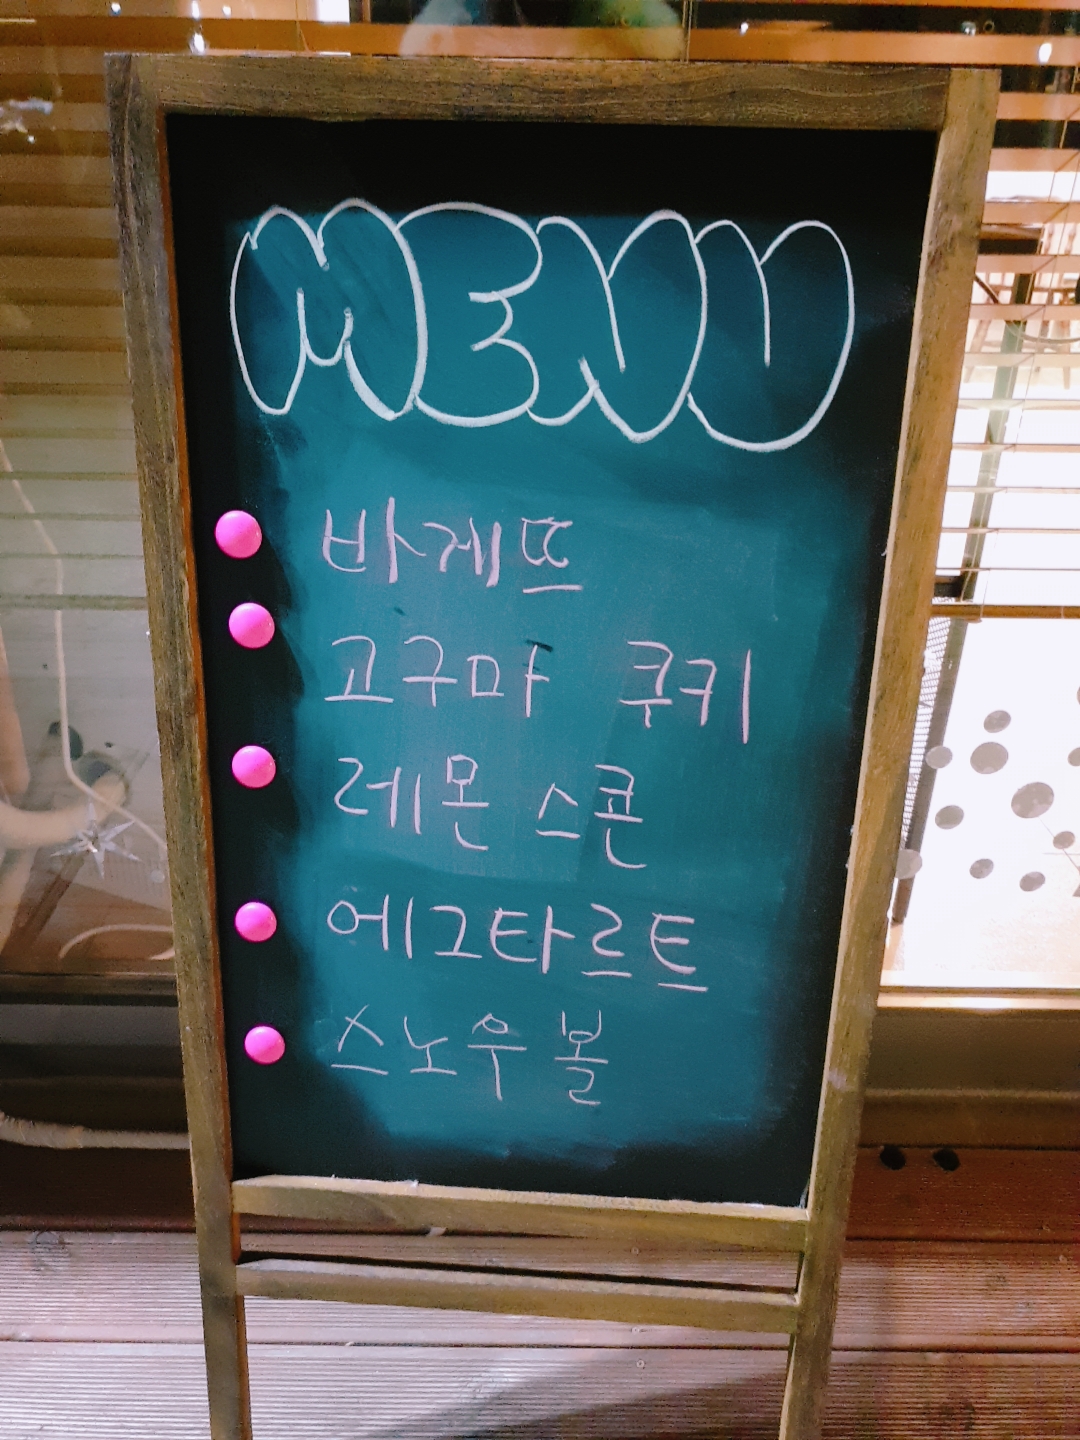 MENU
바게뜨
고구마 쿠키
레몬 스콘
에그타르트
스노우볼